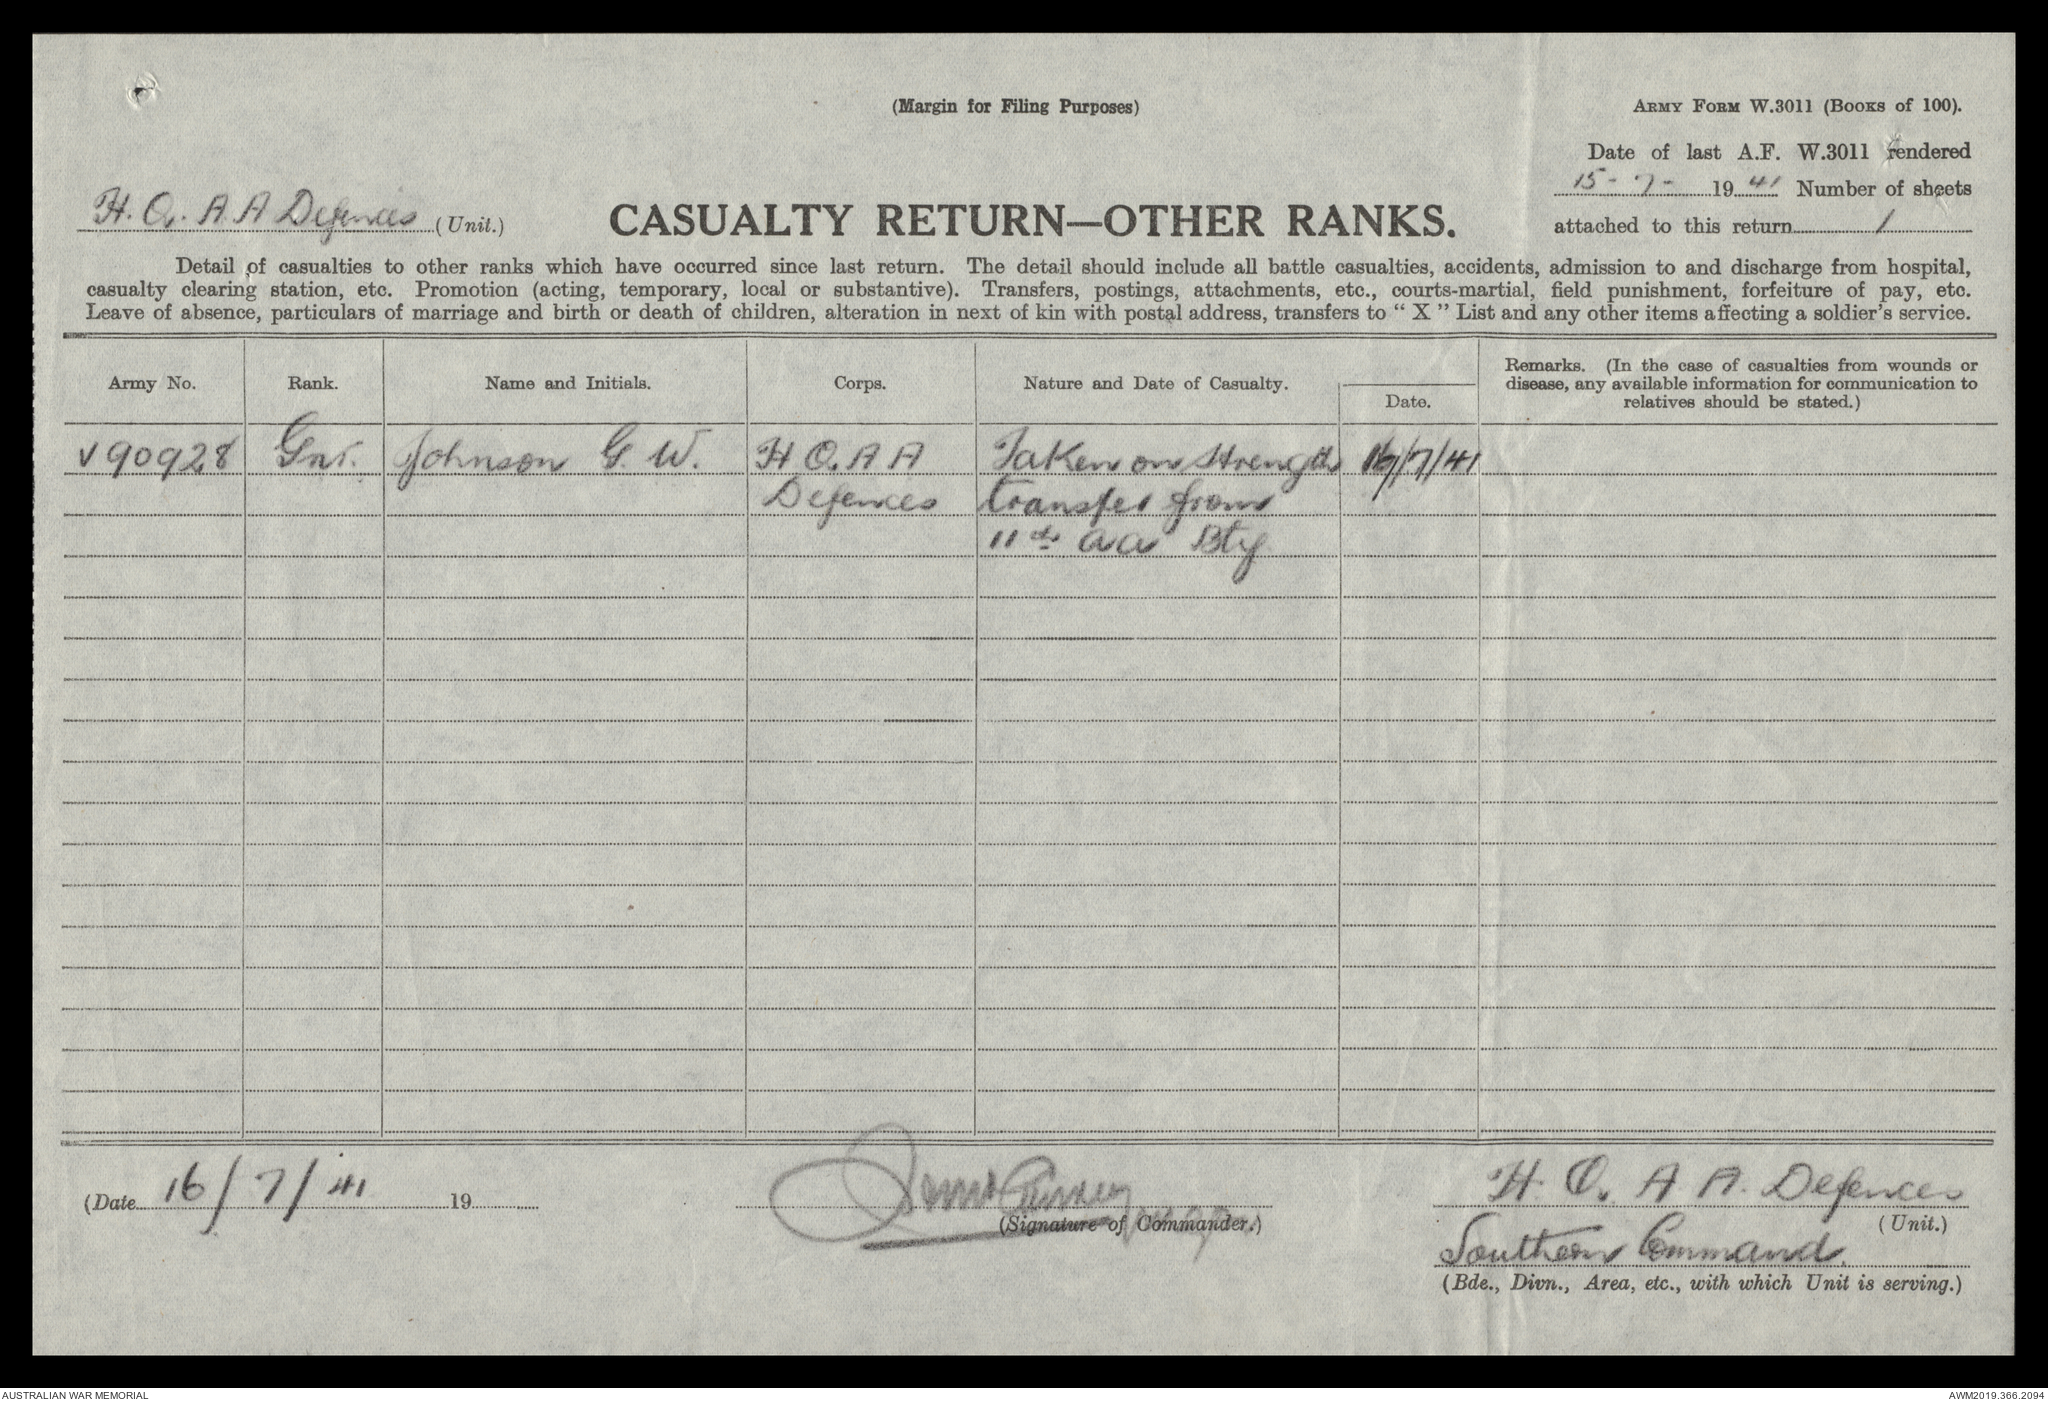 (Margin for Filing Purposes)
ARMY FORM W.3011 (BOOKS of 100).
Date of last A.F. W.3011 rendered
15-7-1941 Number of sheets
attached to this return 1
H.Q. A A Defences (Unit.)
CASUALTY RETURN—OTHER RANKS.
Detail of casualties to other ranks which have occurred since last return. The detail should include all battle casualties, accidents, admission to and discharge from hospital,
casualty clearing station, etc. Promotion (acting, temporary, local or substantive). Transfers, postings, attachments, etc., courts-martial, field punishment, forfeiture of pay, etc.
Leave of absence, particulars of marriage and birth or death of children, alteration in next of kin with postal address, transfers to "X" List and any other items affecting a soldier's service.
Army No. Rank. Name and Initials. Corps. Nature and Date of Casualty. Date. Remarks. (In the case of casualties from wounds or
disease, any available information for communication to
relatives should be stated.)
V90928 Gnr. Johnson G. W. H Q. A A Taken on Strength 16/7/41
Defences transfer from
11th aa Bty
(Date 16/7/41 19
(Signature of Commander.)
H. Q. A A. Defences
(Unit.)
Southern Command.
(Bde., Divn., Area, etc., with which Unit is serving.)
AUSTRALIAN WAR MEMORIAL
AWM2019.366.2094